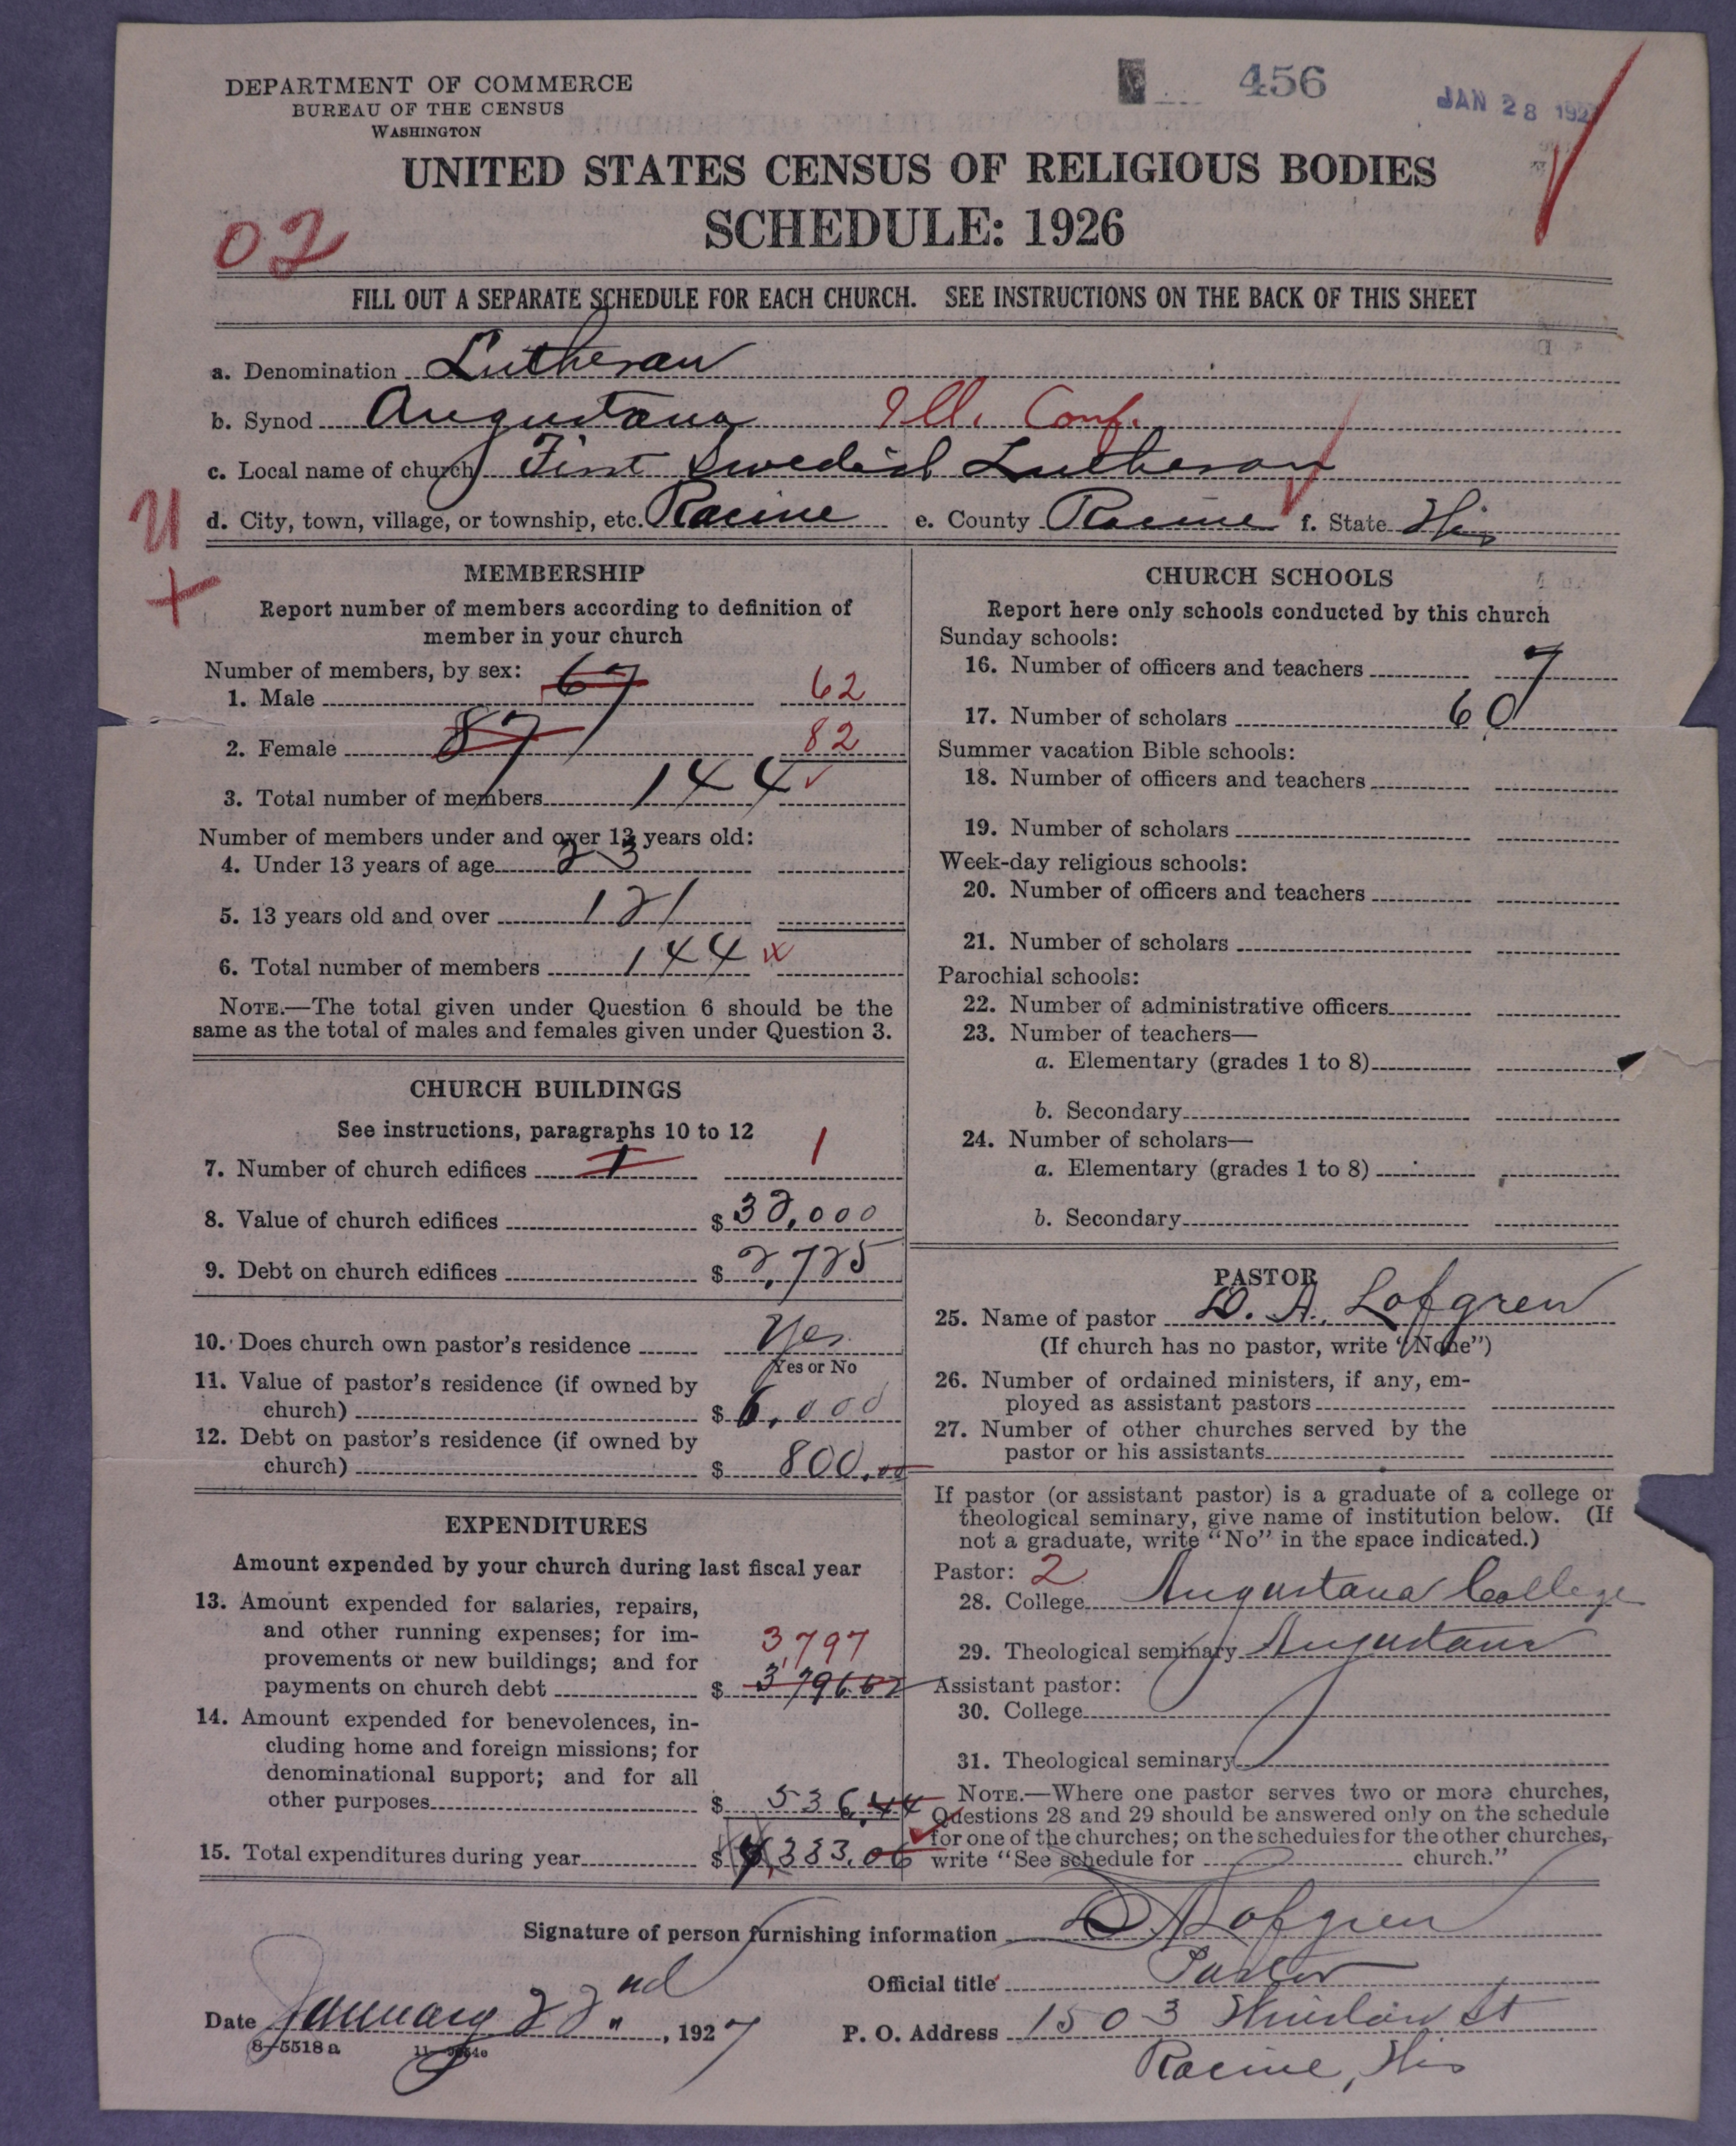 DEPARTMENT OF COMMERCE
BUREAU OF THE CENSUS
WASHINGTON
456
JAN 28 192
UNITED STATES CENSUS OF RELIGIOUS BODIES
SCHEDULE: 1926
02
FILL OUT A SEPARATE SCHEDULE FOR EACH CHURCH. SEE INSTRUCTIONS ON THE BACK OF THIS SHEET
a. Denomination Lutheran
b. Synod Augustana Ill. Conf.
c. Local name of church First Swedish Lutheran
d. City, town, village, or township, etc. Racine e. County Racine f. State Wis
MEMBERSHIP
Report number of members according to definition of
member in your church
Number of members, by sex:
1. Male 67 62
2. Female 87 82
3. Total number of members 144
Number of members under and over 13 years old:
4. Under 13 years of age 23
5. 13 years old and over 121
6. Total number of members 144
NOTE.—The total given under Question 6 should be the
same as the total of males and females given under Question 3.
CHURCH BUILDINGS
See instructions, paragraphs 10 to 12
7. Number of church edifices 1 1
8. Value of church edifices $ 32,000
9. Debt on church edifices $ 2,725
10. Does church own pastor's residence Yes
Yes or No
11. Value of pastor's residence (if owned by
church) $ 6,000
12. Debt on pastor's residence (if owned by
church) $ 800.00
EXPENDITURES
Amount expended by your church during last fiscal year
13. Amount expended for salaries, repairs,
and other running expenses; for im-
provements or new buildings; and for 3,797
payments on church debt $ 3,796.62
14. Amount expended for benevolences, in-
cluding home and foreign missions; for
denominational support; and for all
other purposes $ 536.44
15. Total expenditures during year $ 4,333.06
CHURCH SCHOOLS
Report here only schools conducted by this church
Sunday schools:
16. Number of officers and teachers 7
17. Number of scholars 60
Summer vacation Bible schools:
18. Number of officers and teachers
19. Number of scholars
Week-day religious schools:
20. Number of officers and teachers
21. Number of scholars
Parochial schools:
22. Number of administrative officers
23. Number of teachers—
a. Elementary (grades 1 to 8)
b. Secondary
24. Number of scholars—
a. Elementary (grades 1 to 8)
b. Secondary
PASTOR
25. Name of pastor D. A. Lofgren
(If church has no pastor, write "None")
26. Number of ordained ministers, if any, em-
ployed as assistant pastors
27. Number of other churches served by the
pastor or his assistants
If pastor (or assistant pastor) is a graduate of a college or
theological seminary, give name of institution below. (If
not a graduate, write "No" in the space indicated.)
Pastor: 2
28. College Augustana College
29. Theological seminary Augustana
Assistant pastor:
30. College
31. Theological seminary
NOTE.—Where one pastor serves two or more churches,
Questions 28 and 29 should be answered only on the schedule
for one of the churches; on the schedules for the other churches,
write "See schedule for church."
Signature of person furnishing information D A Lofgren
Official title Pastor
Date January 22nd, 1927
P. O. Address 1503 Winslow St
Racine, Wis
8-5518 a